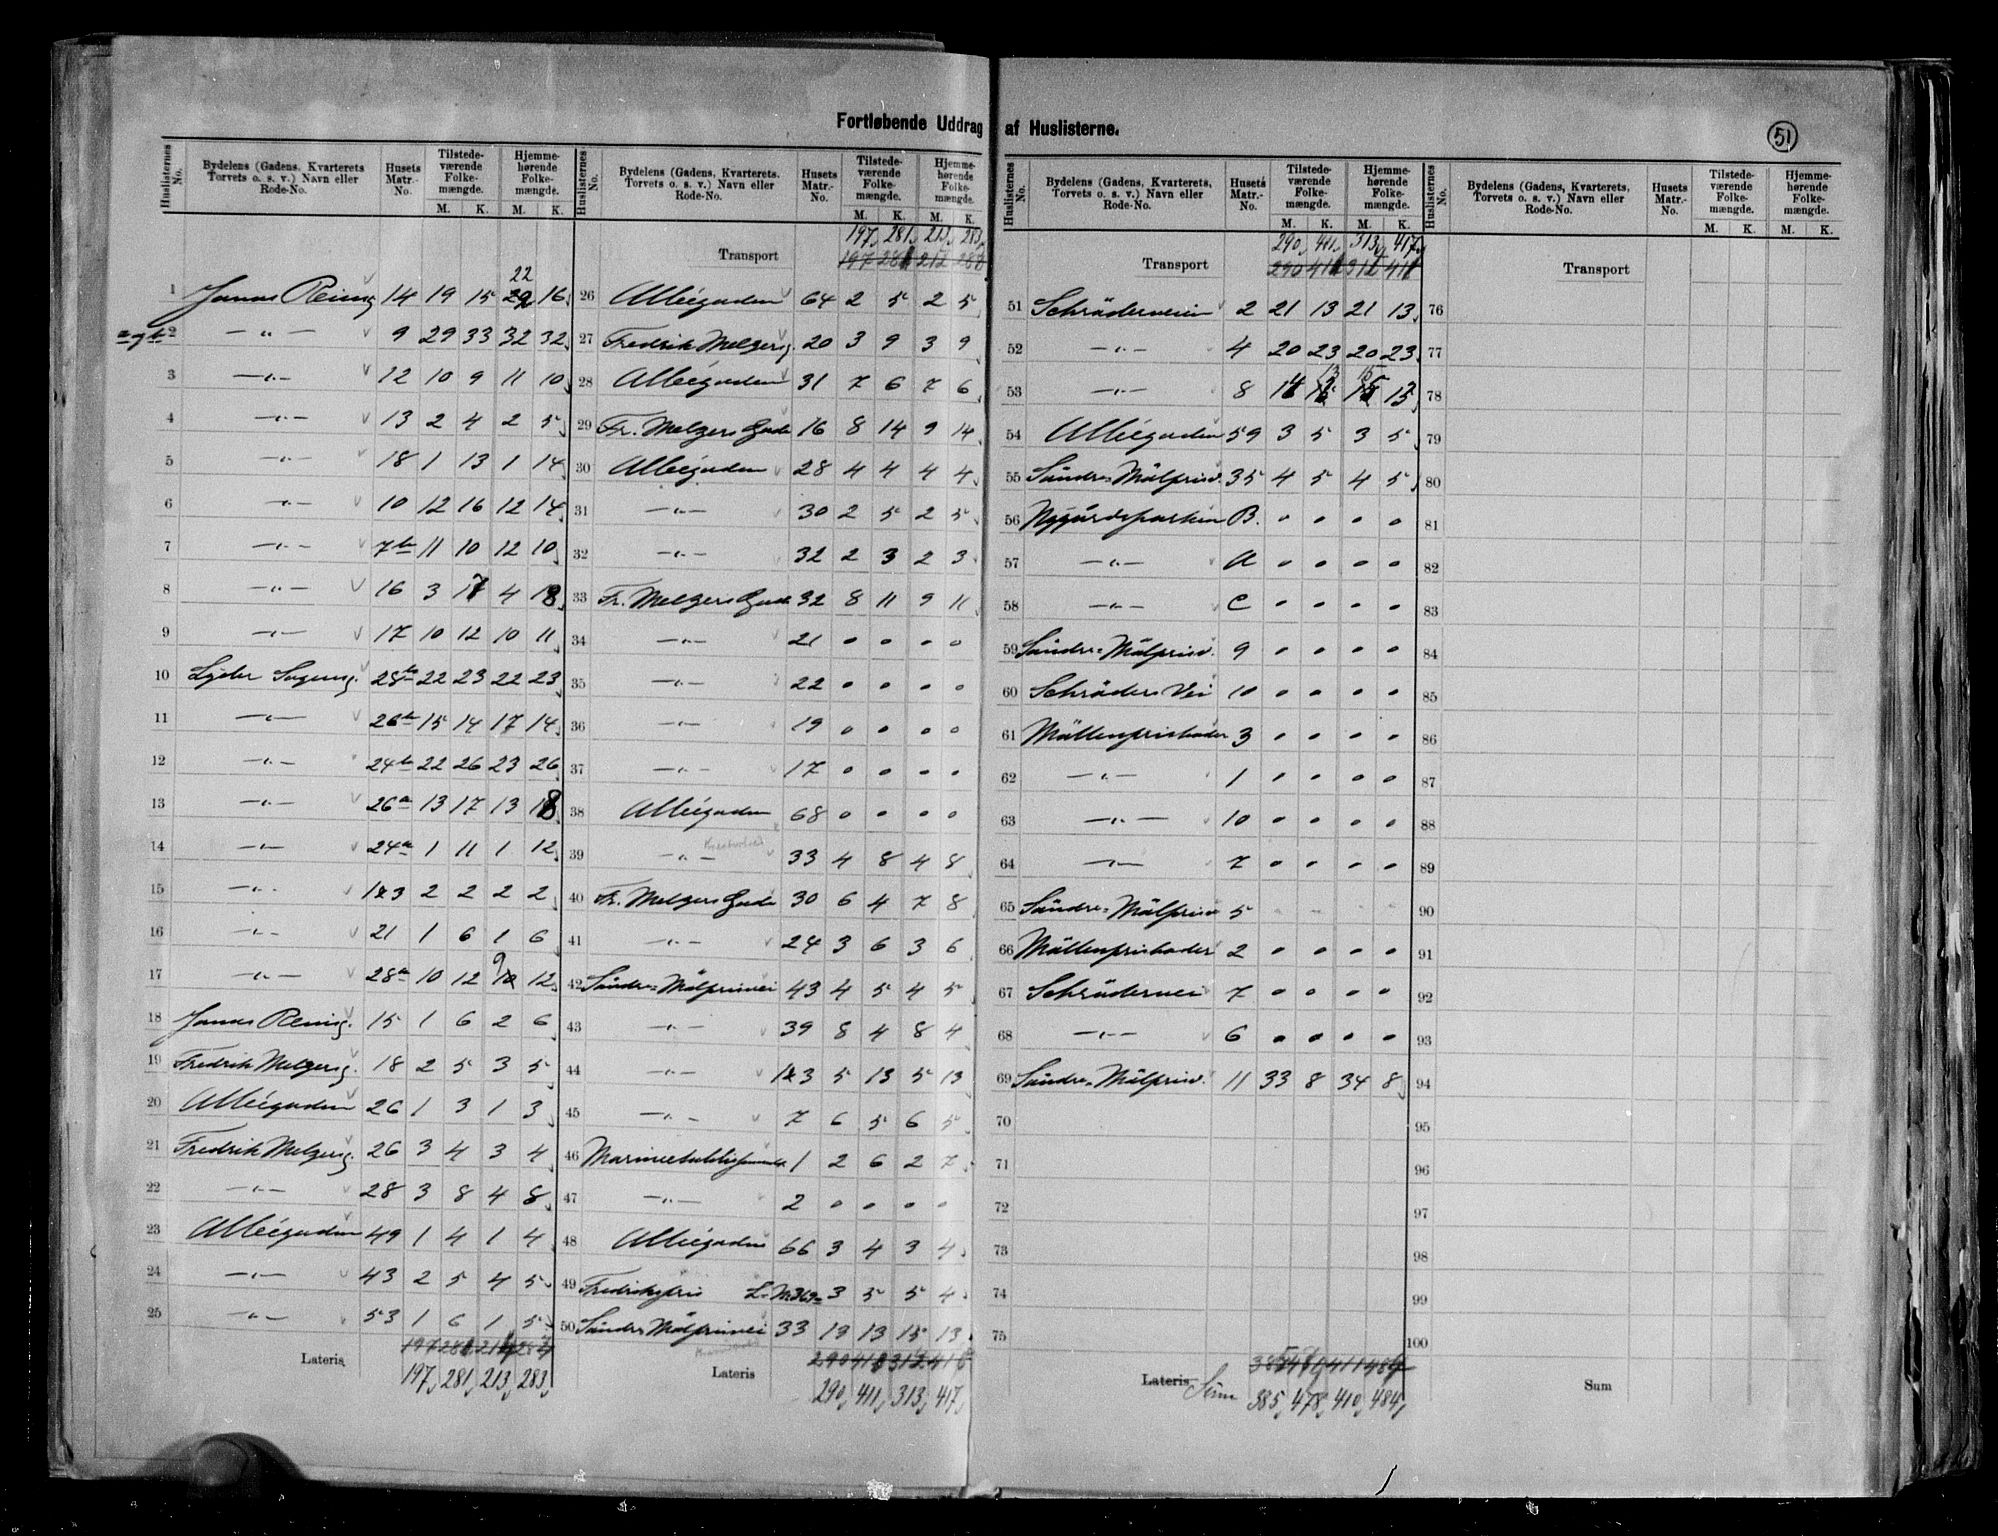 Fortløbende Uddrag af Huslisterne.
51
Huslisternes No.
Bydelens (Gadens, Kvarterets Torvets o. s. v.) Navn eller Rode-No.
Husets Matr.-No.
Tilstedeværende Folkemængde. M. K.
Hjemmehørende Folkemængde. M. K.
1 Jonas Reinsg 14 19 15 22 16
2 —„— 9 29 33 32 32
3 —„— 12 10 9 11 10
4 —„— 13 2 4 2 5
5 —„— 18 1 13 1 14
6 —„— 10 12 16 12 14
7 —„— 7b 11 10 12 10
8 —„— 16 3 17 4 18
9 —„— 17 10 12 10 11
10 Lyder Sagensg. 28b 22 23 22 23
11 —„— 26b 15 14 17 14
12 —„— 24b 22 26 23 26
13 —„— 26a 13 17 13 18
14 —„— 24a 1 11 1 12
15 —„— 2 2 2 2
16 —„— 21 1 6 1 6
17 —„— 28a 10 12 9 12
18 Jonas Reinsg. 15 1 6 2 6
19 Fredrik Melzersg. 18 2 5 3 5
20 Alléegaden 26 1 3 1 3
21 Fredrik Melzersg. 26 3 4 3 4
22 —„— 28 3 8 4 8
23 Alléegaden 49 1 4 1 4
24 —„— 43 2 5 4 5
25 —„— 53 1 6 1 5
Lateris 197 281 213 283
Huslisternes No.
Bydelens (Gadens, Kvarterets. Torvets o. s. v.) Navn eller Rode-No.
Husets Matr.-No.
Tilstedeværende Folkemængde. M. K.
Hjemmehørende Folkemængde. M. K.
Transport 197 281 213 283
26 Alléegaden 64 2 5 2 5
27 Fredrik Melzersg. 20 3 9 3 9
28 Alléegaden 31 7 6 7 6
29 Fr. Melzers Gade 16 8 14 9 14
30 Alléegaden 28 4 4 4 4
31 —„— 30 2 5 2 5
32 —„— 32 2 3 2 3
33 Fr. Melzers Gade 32 8 11 9 11
34 —„— 21 0 0 0 0
35 —„— 22 0 0 0 0
36 —„— 19 0 0 0 0
37 —„— 17 0 0 0 0
38 Alléegaden 68 0 0 0 0
39 —„— 33 4 8 4 8
40 Fr. Melzers Gade 30 6 4 7 8
41 —„— 24 3 6 3 6
42 Søndre Mølprisvei 43 4 5 4 5
43 —„— 39 8 4 8 4
44 —„— 5 13 5 13
45 —„— 7 6 5 6 5
46 1 2 6 2 7
47 —„— 2 0 0 0 0
48 Alléegaden 66 3 4 3 4
49 3 5 5 4
50 Søndre Mølprisvei 33 19 13 15 13
Lateris 290 411 313 417
Huslisternes No.
Bydelens (Gadens, Kvarterets, Torvets o. s. v.) Navn eller Rode-No.
Husets Matr.-No.
Tilstedeværende Folkemængde. M. K.
Hjemmehørende Folkemængde. M. K.
Transport 290 411 313 417
51 Schrøderveien 2 21 13 21 13
52 —„— 4 20 23 20 23
53 —„— 8 14 13 15 13
54 Alléegaden 59 3 5 3 5
55 Søndre Mølprisv. 35 4 5 4 5
56 Nygårdsparken B. 0 0 0 0
57 —„— A 0 0 0 0
58 —„— C 0 0 0 0
59 Søndre Mølprisv. 9 0 0 0 0
60 Schrøders Vei 10 0 0 0 0
61 Møllenprisbader 3 0 0 0 0
62 —„— 1 0 0 0 0
63 —„— 10 0 0 0 0
64 —„— 7 0 0 0 0
65 Søndre Mølprisv 5 - - - -
66 Møllenprisbader 2 0 0 0 0
67 Schrødervei 7 0 0 0 0
68 —„— 6 0 0 0 0
69 Søndre Mølprisv. 11 33 8 34 8
70
71
72
73
74
75
Lateris Sum 385 478 410 484
Huslisternes No.
Bydelens (Gadens, Kvarterets, Torvets o. s. v.) Navn eller Rode-No.
Husets Matr.-No.
Tilstedeværende Folkemængde. M. K.
Hjemmehørende Folkemængde. M. K.
Transport
76
77
78
79
80
81
82
83
84
85
86
87
88
89
90
91
92
93
94
95
96
97
98
99
100
Sum